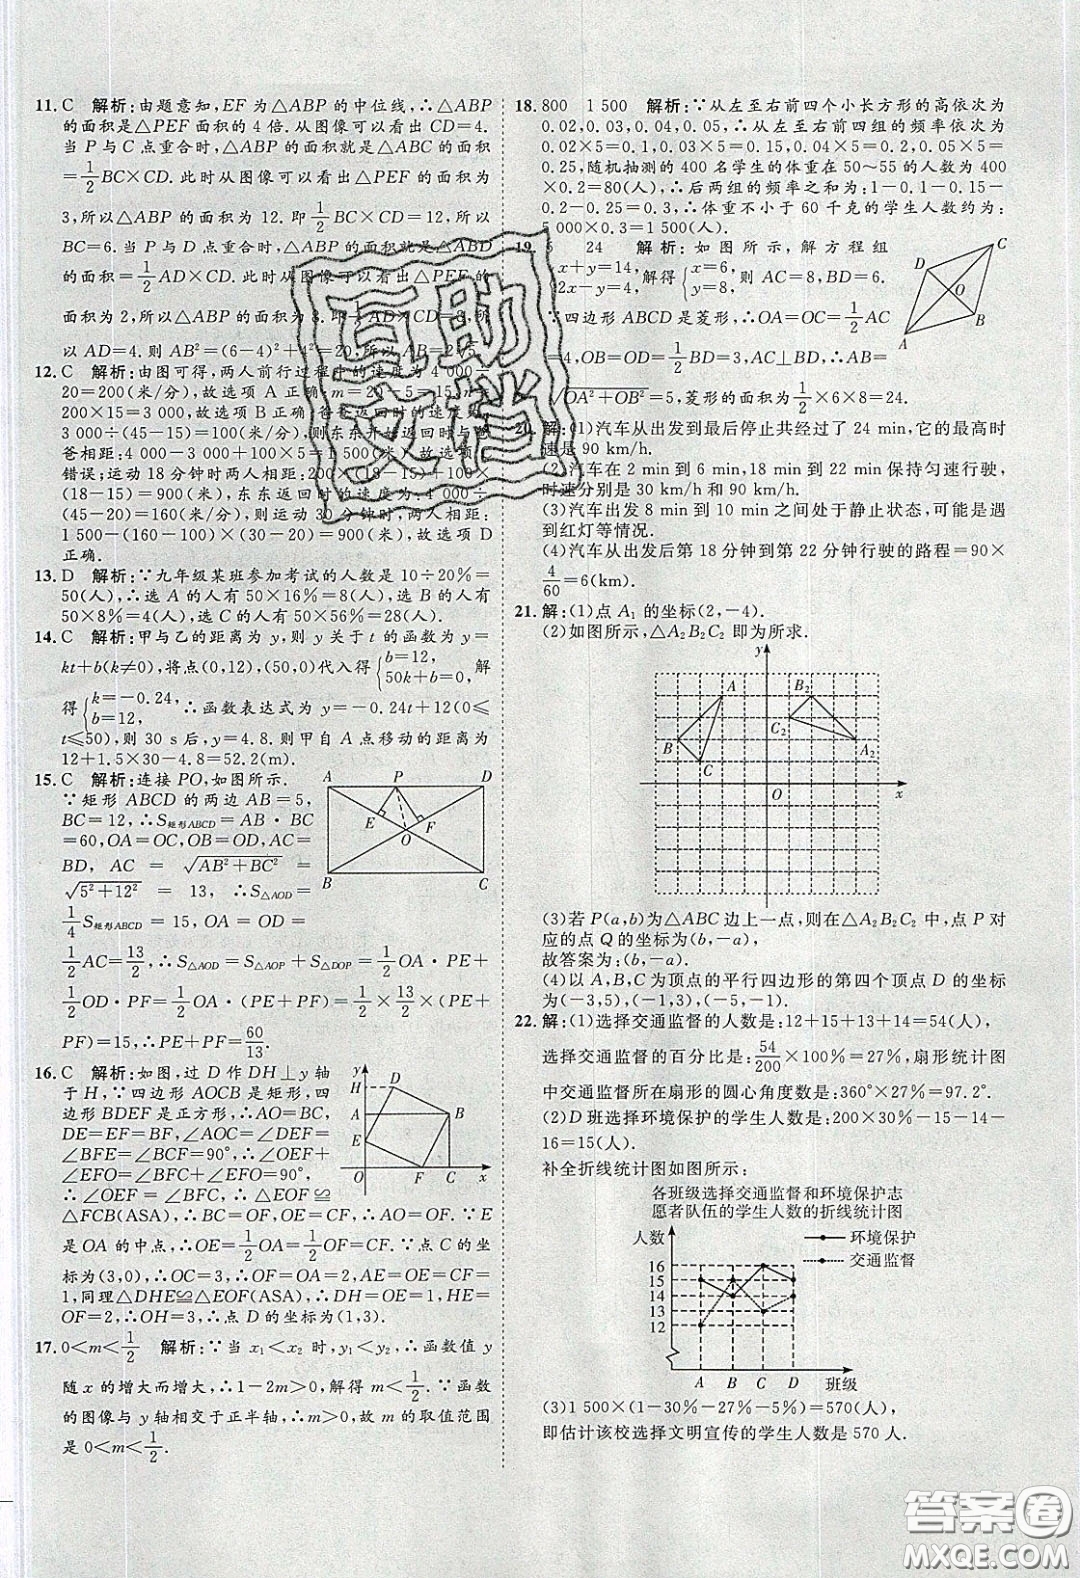 11. C 解析:由题意知,EF 为△ABP 的中位线,∴△ABP
的面积是△PEF 面积的 4 倍. 从图像可以看出 CD=4.
当 P 与 C 点重合时,△ABP 的面积就是△ABC 的面积
=1/2 BC×CD. 此时从图像可以看出△PEF 的面积为
3,所以△ABP 的面积为 12. 即 1/2 BC×CD=12,所以
BC=6. 当 P 与 D 点重合时,△ABP 的面积就是△ABD
的面积=1/2 AD×CD. 此时从图像可以看出△PEF 的
面积为 2,所以△ABP 的面积为 8. 即 1/2 AD×CD=8,所
以 AD=4. 则 AB²=(6-4)²+4²=20;所以 AB=2√5.
12. C 解析:由图可得,两人前行过程中的速度为 4 000÷
20=200(米/分),故选项 A 正确;m=20-5=15,n=
200×15=3 000,故选项 B 正确;爸爸返回时的速度为
3 000÷(45-15)=100(米/分),则东东开始返回时与爸
爸相距:4 000-3 000+100×5=1 500(米),故选项 C
错误;运动 18 分钟时两人相距:200×(18-15)+100×
(18-15)=900(米),东东返回时的速度为:4 000÷
(45-20)=160(米/分),则运动 30 分钟时,两人相距:
1 500-(160-100)×(30-20)=900(米),故选项 D
正确.
13. D 解析:∵九年级某班参加考试的人数是 10÷20%=
50(人),∴选 A 的人有 50×16%=8(人),选 B 的人有
50×8%=4(人),选 C 的人有 50×56%=28(人).
14. C 解析:甲与乙的距离为 y,则 y 关于 t 的函数为 y=
kt+b(k≠0),将点(0,12),(50,0)代入得{b=12, 50k+b=0, 解
得{k=-0.24, b=12, ∴函数表达式为 y=-0.24t+12(0≤
t≤50),则 30 s后,y=4.8. 则甲自 A 点移动的距离为
12+1.5×30-4.8=52.2(m).
15. C 解析:连接 PO,如图所示.
∵矩形 ABCD 的两边 AB=5,
BC=12,∴S矩形ABCD=AB·BC
=60,OA=OC,OB=OD,AC=
BD, AC = √(AB²+BC²) =
√(5²+12²) = 13, ∴S△AOD =
1/4 S矩形ABCD = 15, OA = OD =
1/2 AC=13/2,∴S△AOD=S△AOP+S△DOP=1/2 OA·PE+
1/2 OD·PF=1/2 OA·(PE+PF)=1/2×13/2×(PE+
PF)=15,∴PE+PF=60/13.
A P D
E F
O
B C
16. C 解析:如图,过 D 作 DH⊥y 轴
于 H,∵四边形 AOCB 是矩形,四
边形 BDEF 是正方形,∴AO=BC,
DE=EF=BF,∠AOC=∠DEF=
∠BFE=∠BCF=90°,∴∠OEF+
∠EFO=∠BFC+∠EFO=90°,
∴∠OEF=∠BFC,∴△EOF≌
△FCB(ASA),∴BC=OF,OE=CF,∴AO=OF. ∵E
是 OA 的中点,∴OE=1/2 OA=1/2 OF=CF. ∵点 C 的坐
标为(3,0),∴OC=3,∴OF=OA=2,AE=OE=CF=
1,同理△DHE≌△EOF(ASA),∴DH=OE=1,HE=
OF=2,∴OH=3,∴点 D 的坐标为(1,3).
y
H D
A B
E
O F C x
17. 0<m<1/2 解析:∵当 x₁<x₂ 时,y₁<y₂,∴函数值 y
随 x 的增大而增大,∴1-2m>0,解得 m<1/2. ∵函数
的图像与 y 轴相交于正半轴,∴m>0,故 m 的取值范围
是 0<m<1/2.
18. 800 1 500 解析:∵从左至右前四个小长方形的高依次为
0.02,0.03,0.04,0.05,∴从左至右前四组的频率依次为
0.02×5=0.1,0.03×5=0.15,0.04×5=0.2,0.05×5
=0.25,随机抽测的 400 名学生的体重在 50~55 的人数为 400
×0.2=80(人),∴后两组的频率之和为:1-0.1-0.15-
0.2-0.25=0.3,∴体重不小于 60 千克的学生人数约为:
5 000×0.3=1 500(人).
19. 5 24 解析:如图所示,解方程组
{x+y=14, 2x-y=4, 解得{x=6, y=8, 则 AC=8,BD=6.
∵四边形 ABCD 是菱形,∴OA=OC=1/2 AC
=4,OB=OD=1/2 BD=3,AC⊥BD,∴AB=
√(OA²+OB²)=5,菱形的面积为 1/2×6×8=24.
C
D
O
B
A
20. 解:(1)汽车从出发到最后停止共经过了 24 min,它的最高时
速是 90 km/h.
(2)汽车在 2 min 到 6 min,18 min 到 22 min 保持匀速行驶,
时速分别是 30 km/h 和 90 km/h.
(3)汽车出发 8 min 到 10 min 之间处于静止状态,可能是遇
到红灯等情况.
(4)汽车从出发后第 18 分钟到第 22 分钟行驶的路程=90×
4/60=6(km).
21. 解:(1)点 A₁ 的坐标(2,-4).
(2)如图所示,△A₂B₂C₂ 即为所求.
y
A B₂
C₂
B A₂
C
O x
(3)若 P(a,b)为△ABC 边上一点,则在△A₂B₂C₂ 中,点 P 对
应的点 Q 的坐标为(b,-a),
故答案为:(b,-a).
(4)以 A,B,C 为顶点的平行四边形的第四个顶点 D 的坐标
为(-3,5),(-1,3),(-5,-1).
22. 解:(1)选择交通监督的人数是:12+15+13+14=54(人),
选择交通监督的百分比是:54/200×100%=27%,扇形统计图
中交通监督所在扇形的圆心角度数是:360°×27%=97.2°.
(2)D 班选择环境保护的学生人数是:200×30%-15-14-
16=15(人).
补全折线统计图如图所示:
各班级选择交通监督和环境保护志
愿者队伍的学生人数的折线统计图
人数
环境保护
交通监督
16
15
14
13
12
A B C D 班级
(3)1 500×(1-30%-27%-5%)=570(人),
即估计该校选择文明宣传的学生人数是 570 人.
互助
文档
答案圈
MXQE.COM